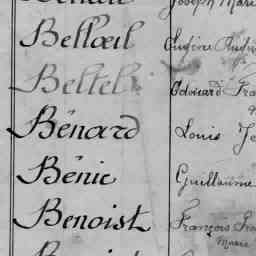 Joseph Mari
Bellœil Eugène Augus
Beltel Edouard Fra
Bénard Louis Jo
Bénic Guillaume
Benoist François Fra
Marie